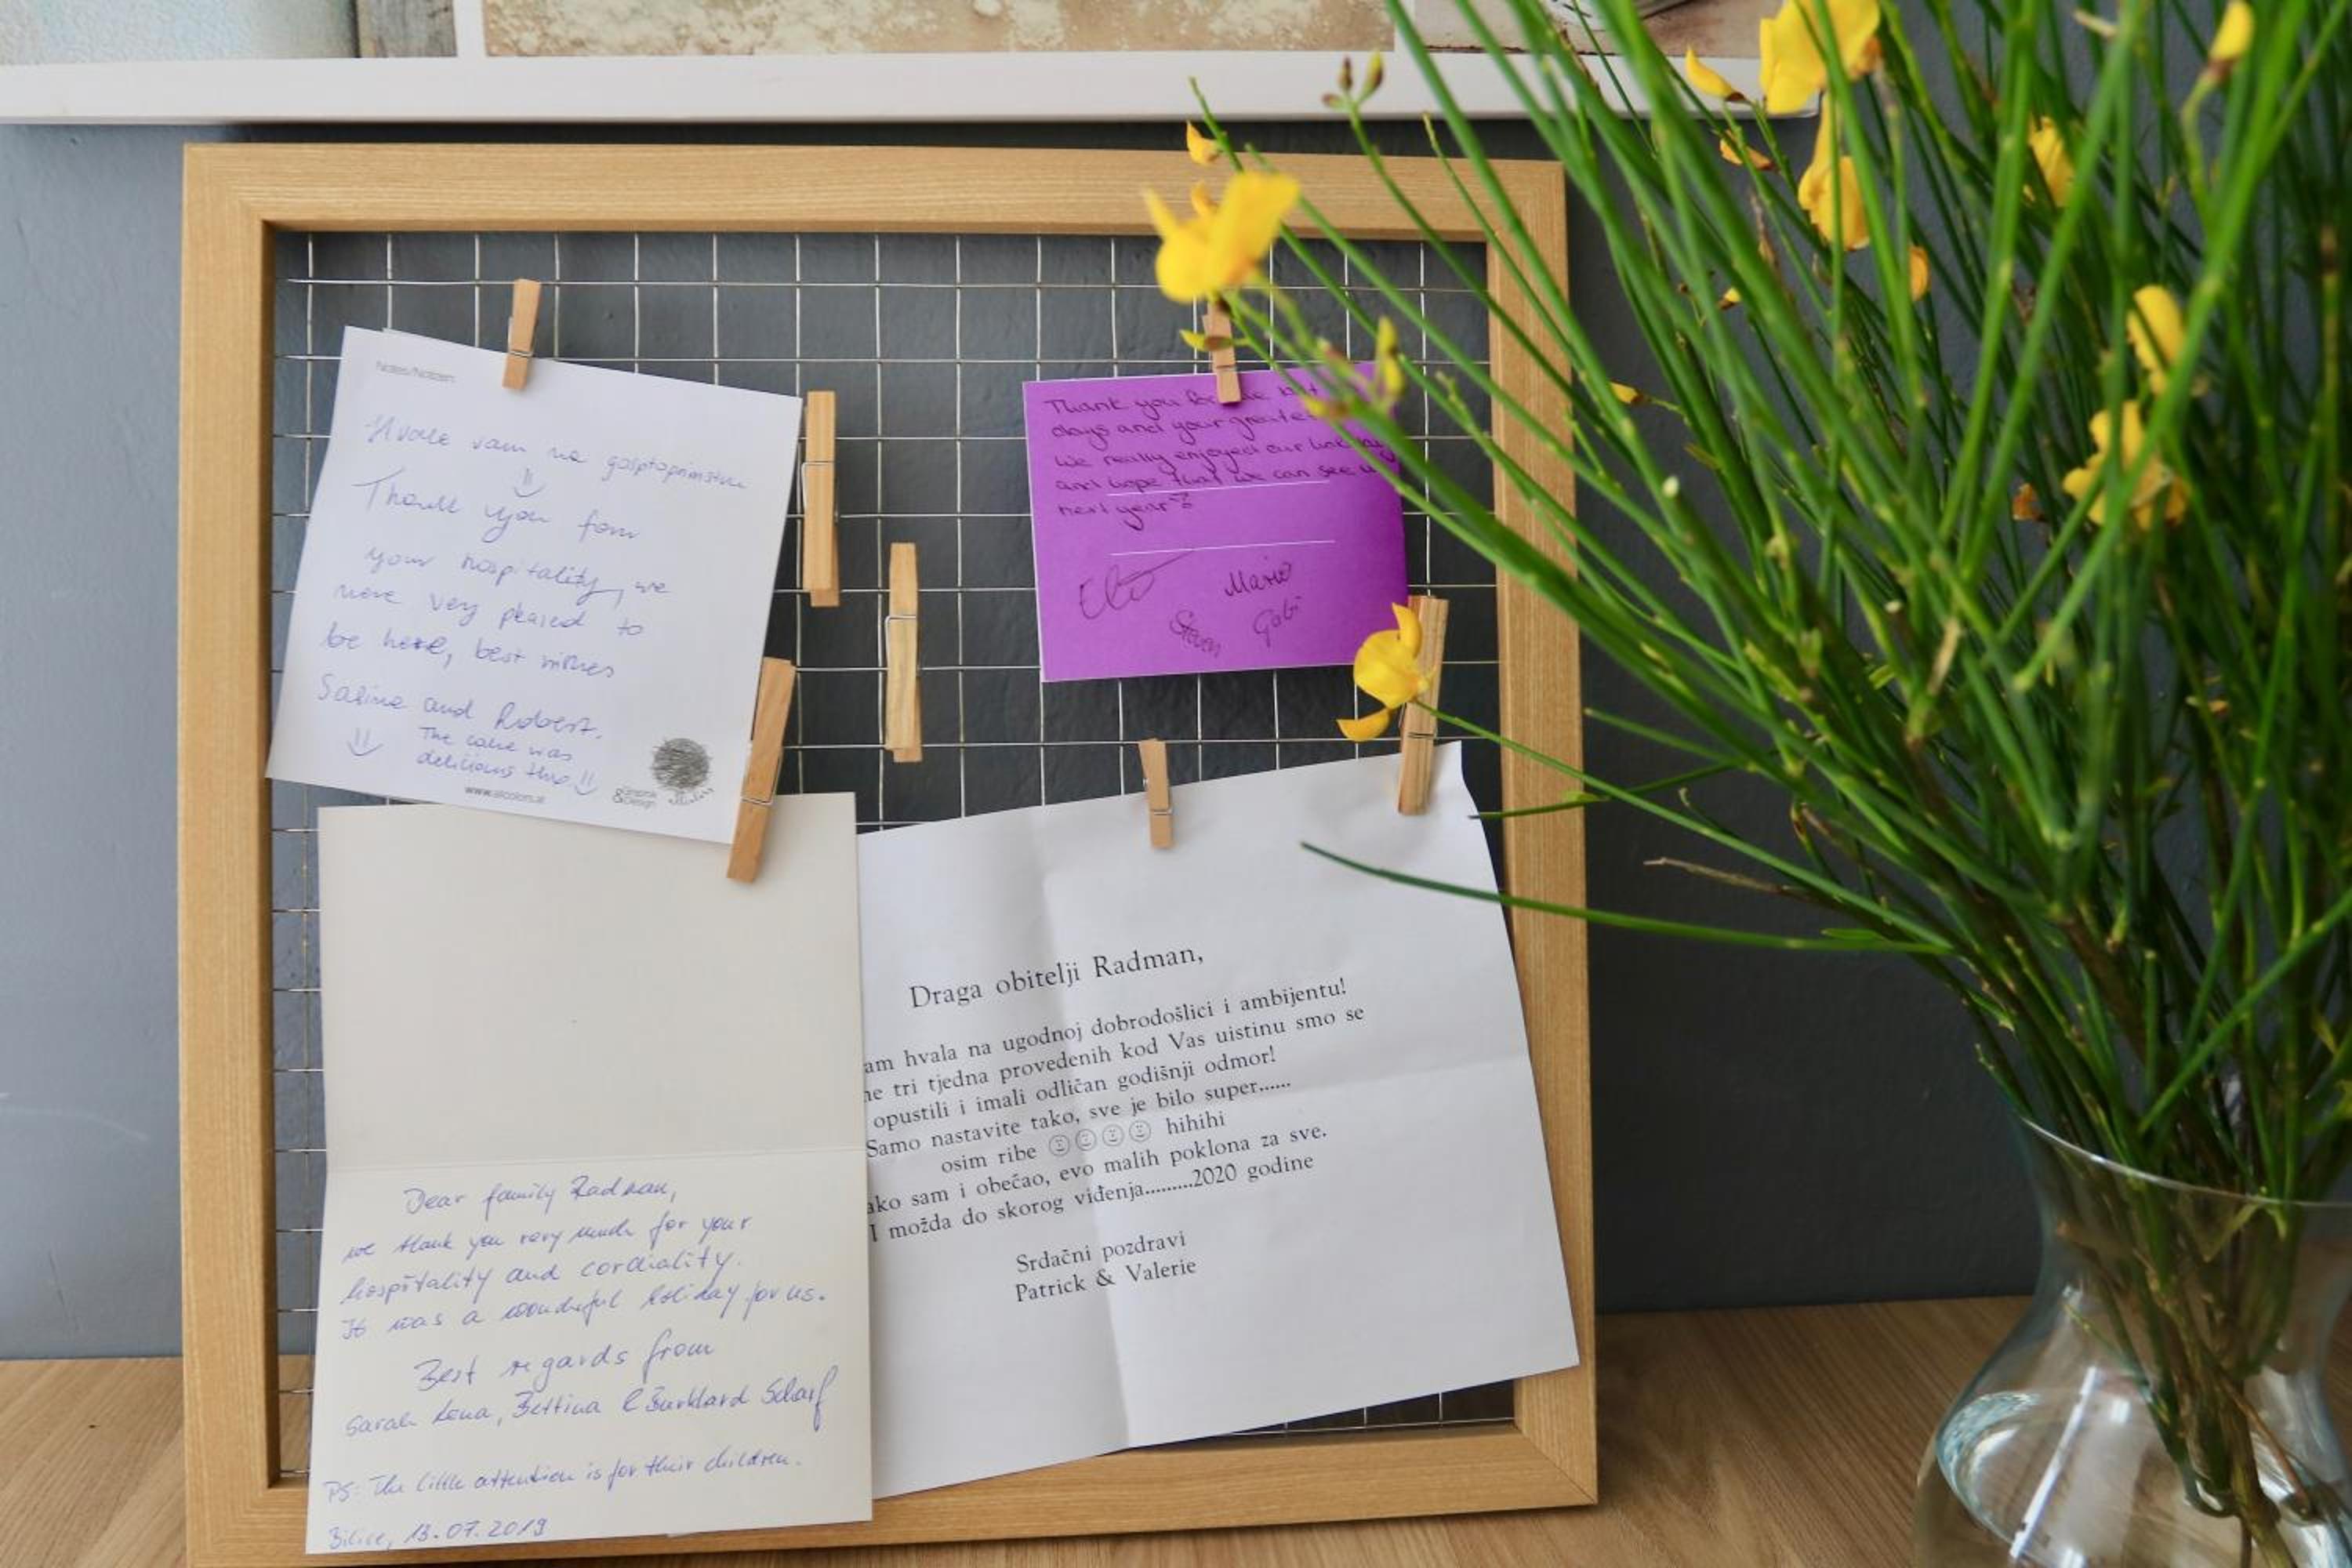 Notes/Notizen
Hvala vam na gosptoprimstvu
Thank you fom
your hospitality, we
were very pleased to
be here, best wishes
Sabina and Robert.
The cake was
delicious tho
www.alcolors.at
Graphik
& Design
Thank you for the
days and your greate
We really enjoyed our holiday
and hope that we can see u
next year
Mario
Gabi
Draga obitelji Radman,
am hvala na ugodnoj dobrodošlici i ambijentu!
ne tri tjedna provedenih kod Vas uistinu smo se
opustili i imali odličan godišnji odmor!
Samo nastavite tako, sve je bilo super......
osim ribe ☺☺☺☺ hihihi
ako sam i obećao, evo malih poklona za sve.
I možda do skorog viđenja.........2020 godine
Srdačni pozdravi
Patrick & Valerie
Dear family Radman,
we thank you very much for your
hospitality and cordiality.
It was a wonderful holiday for us.
Best regards from
Sarah Lena, Bettina & Burkhard Scharf
PS: The little attention is for their children.
Bilice, 13.07.2019